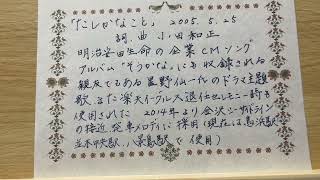 「たしかなこと」 2005.5.25
詞 曲 小田和正
明治安田生命の企業CMソング
アルバム「そうかな」にも収録される
親友でもある星野仙一代のドラマ主題
歌、また楽天イーグルス退任セレモニー時も
使用された 2014年より金沢シーサイドライン
の接近 発車メロディに採用(現在は鳥浜駅
並木中央駅、八景島駅で使用)